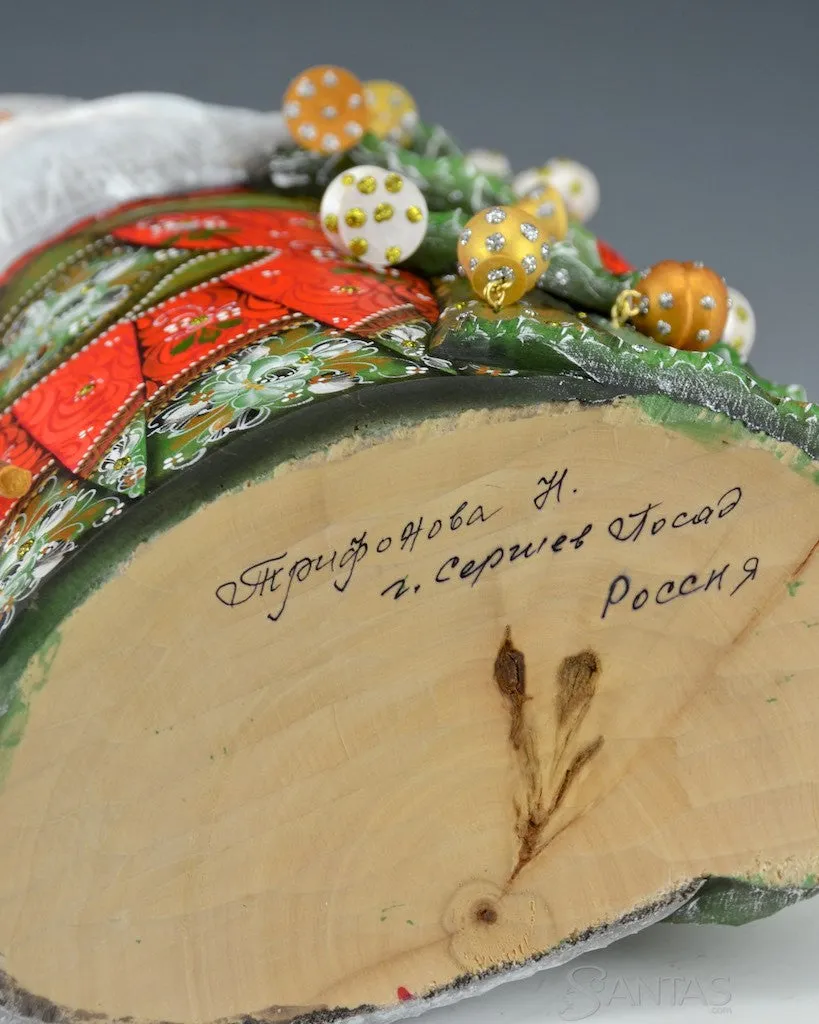 Трифонова Н.
г. Сергиев Посад
Россия
SANTAS.com